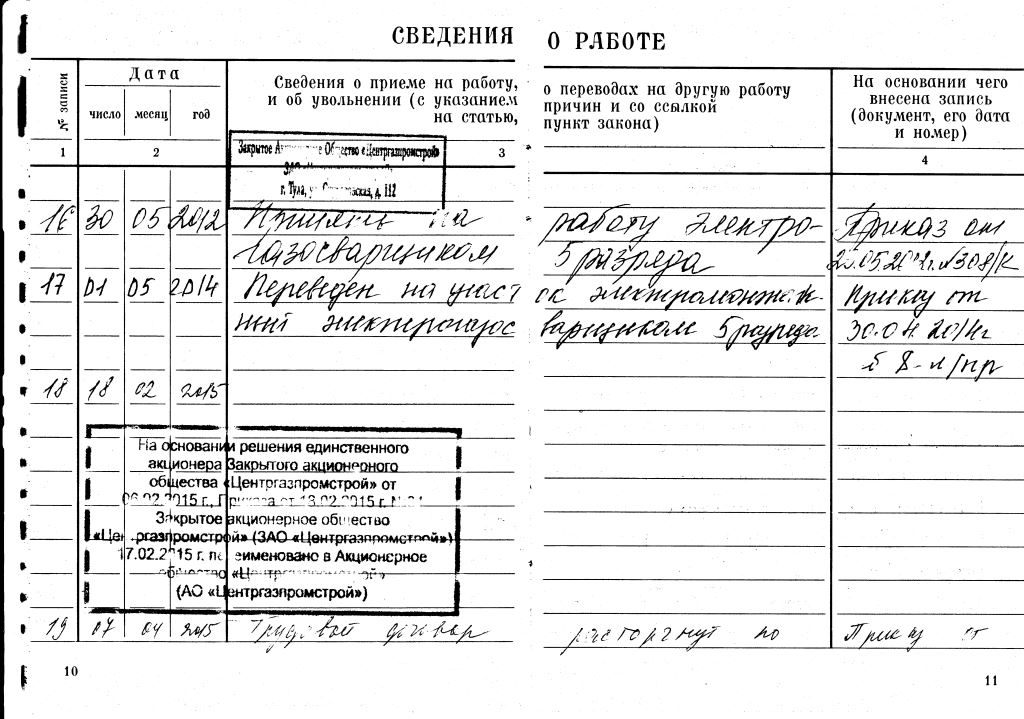 СВЕДЕНИЯ О РАБОТЕ
№ записи
Дата
число месяц год
Сведения о приеме на работу, о переводах на другую работу
и об увольнении (с указанием причин и со ссылкой
на статью, пункт закона)
На основании чего
внесена запись
(документ, его дата
и номер)
1 2 3 4
Закрытое Общество «Центргазпромстрой»
г. Тула, д. 112
16 30 05 2012 Принять на работу электро- Приказ от
газосварщиком 5 разряда 05.2012г. №308/к
17 01 05 2014 Переведен на участок электромонтаж- Приказ от
электрогазосварщиком 5 разряда 30.04.2014г
18 18 02 2015
На основании решения единственного
акционера Закрытого акционерного
общества «Центргазпромстрой» от
06.02.2015 г., Приказа от 13.02.2015 г.
Закрытое акционерное общество
«Центргазпромстрой» (ЗАО «Центргазпромстрой»)
17.02.2015 г. переименовано в Акционерное
общество «Центргазпромстрой»
(АО «Центргазпромстрой»)
19 07 04 2015 Трудовой договор расторгнут по Приказ от
10
11